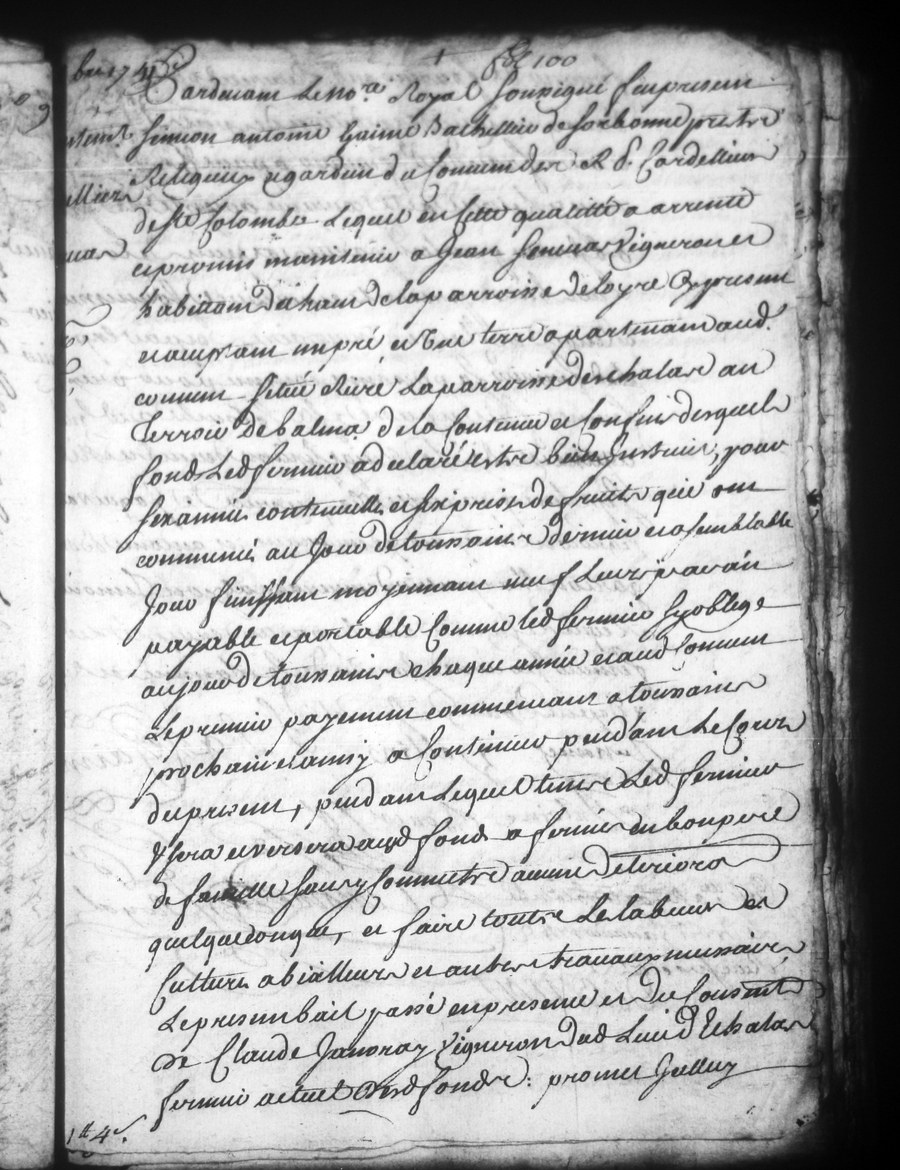 fol 100
Pardevant le no.re Royal soussigné fut present
Simeon antoine Gaime Bachellier de sorbonne pretre
Religieux et gardien du Convent des R. P. Cordelliers
de Ste Colombe lequel en cette qualitté a arrenté
et promis maintenir a Jean vigneron et
habittant du ham de la parroisse de loyre cy present
et acceptant un pré et une terre apartenant aud.
convent situé Riere la parroisse deschalas au
Terroir de balma, de la Contenue et Confins desquels
fonds led fermier a declaré estre bien Instruit, pour
six années continuelles et six prises de fruits qui ont
commencé au Jour de toussaints dernier et a semblable
Jour finissant moyennant neuf Livres par an
payable et portable Comme led fermier sy oblige
au jour de toussaints chaque année et aud Convent
Le premier payement commencant a toussaints
prochain et ainsy a Continuer pendant le Cours
du present, pendant lequel tems led fermier
Usera et versera auxd fonds a fermés en bon pere
de famille sans y Commettre aucune deterioraon
quelqueconque, et faire toutes les labeurs et
Cultures abiailleures et autres travaux necessaires
Le present bail passé en presence et du Consentt
de Claude Janoray Vigneron dud Lieu d'Echalas
fermier actuel desd fonds: promet Galluy
1tt 4s.